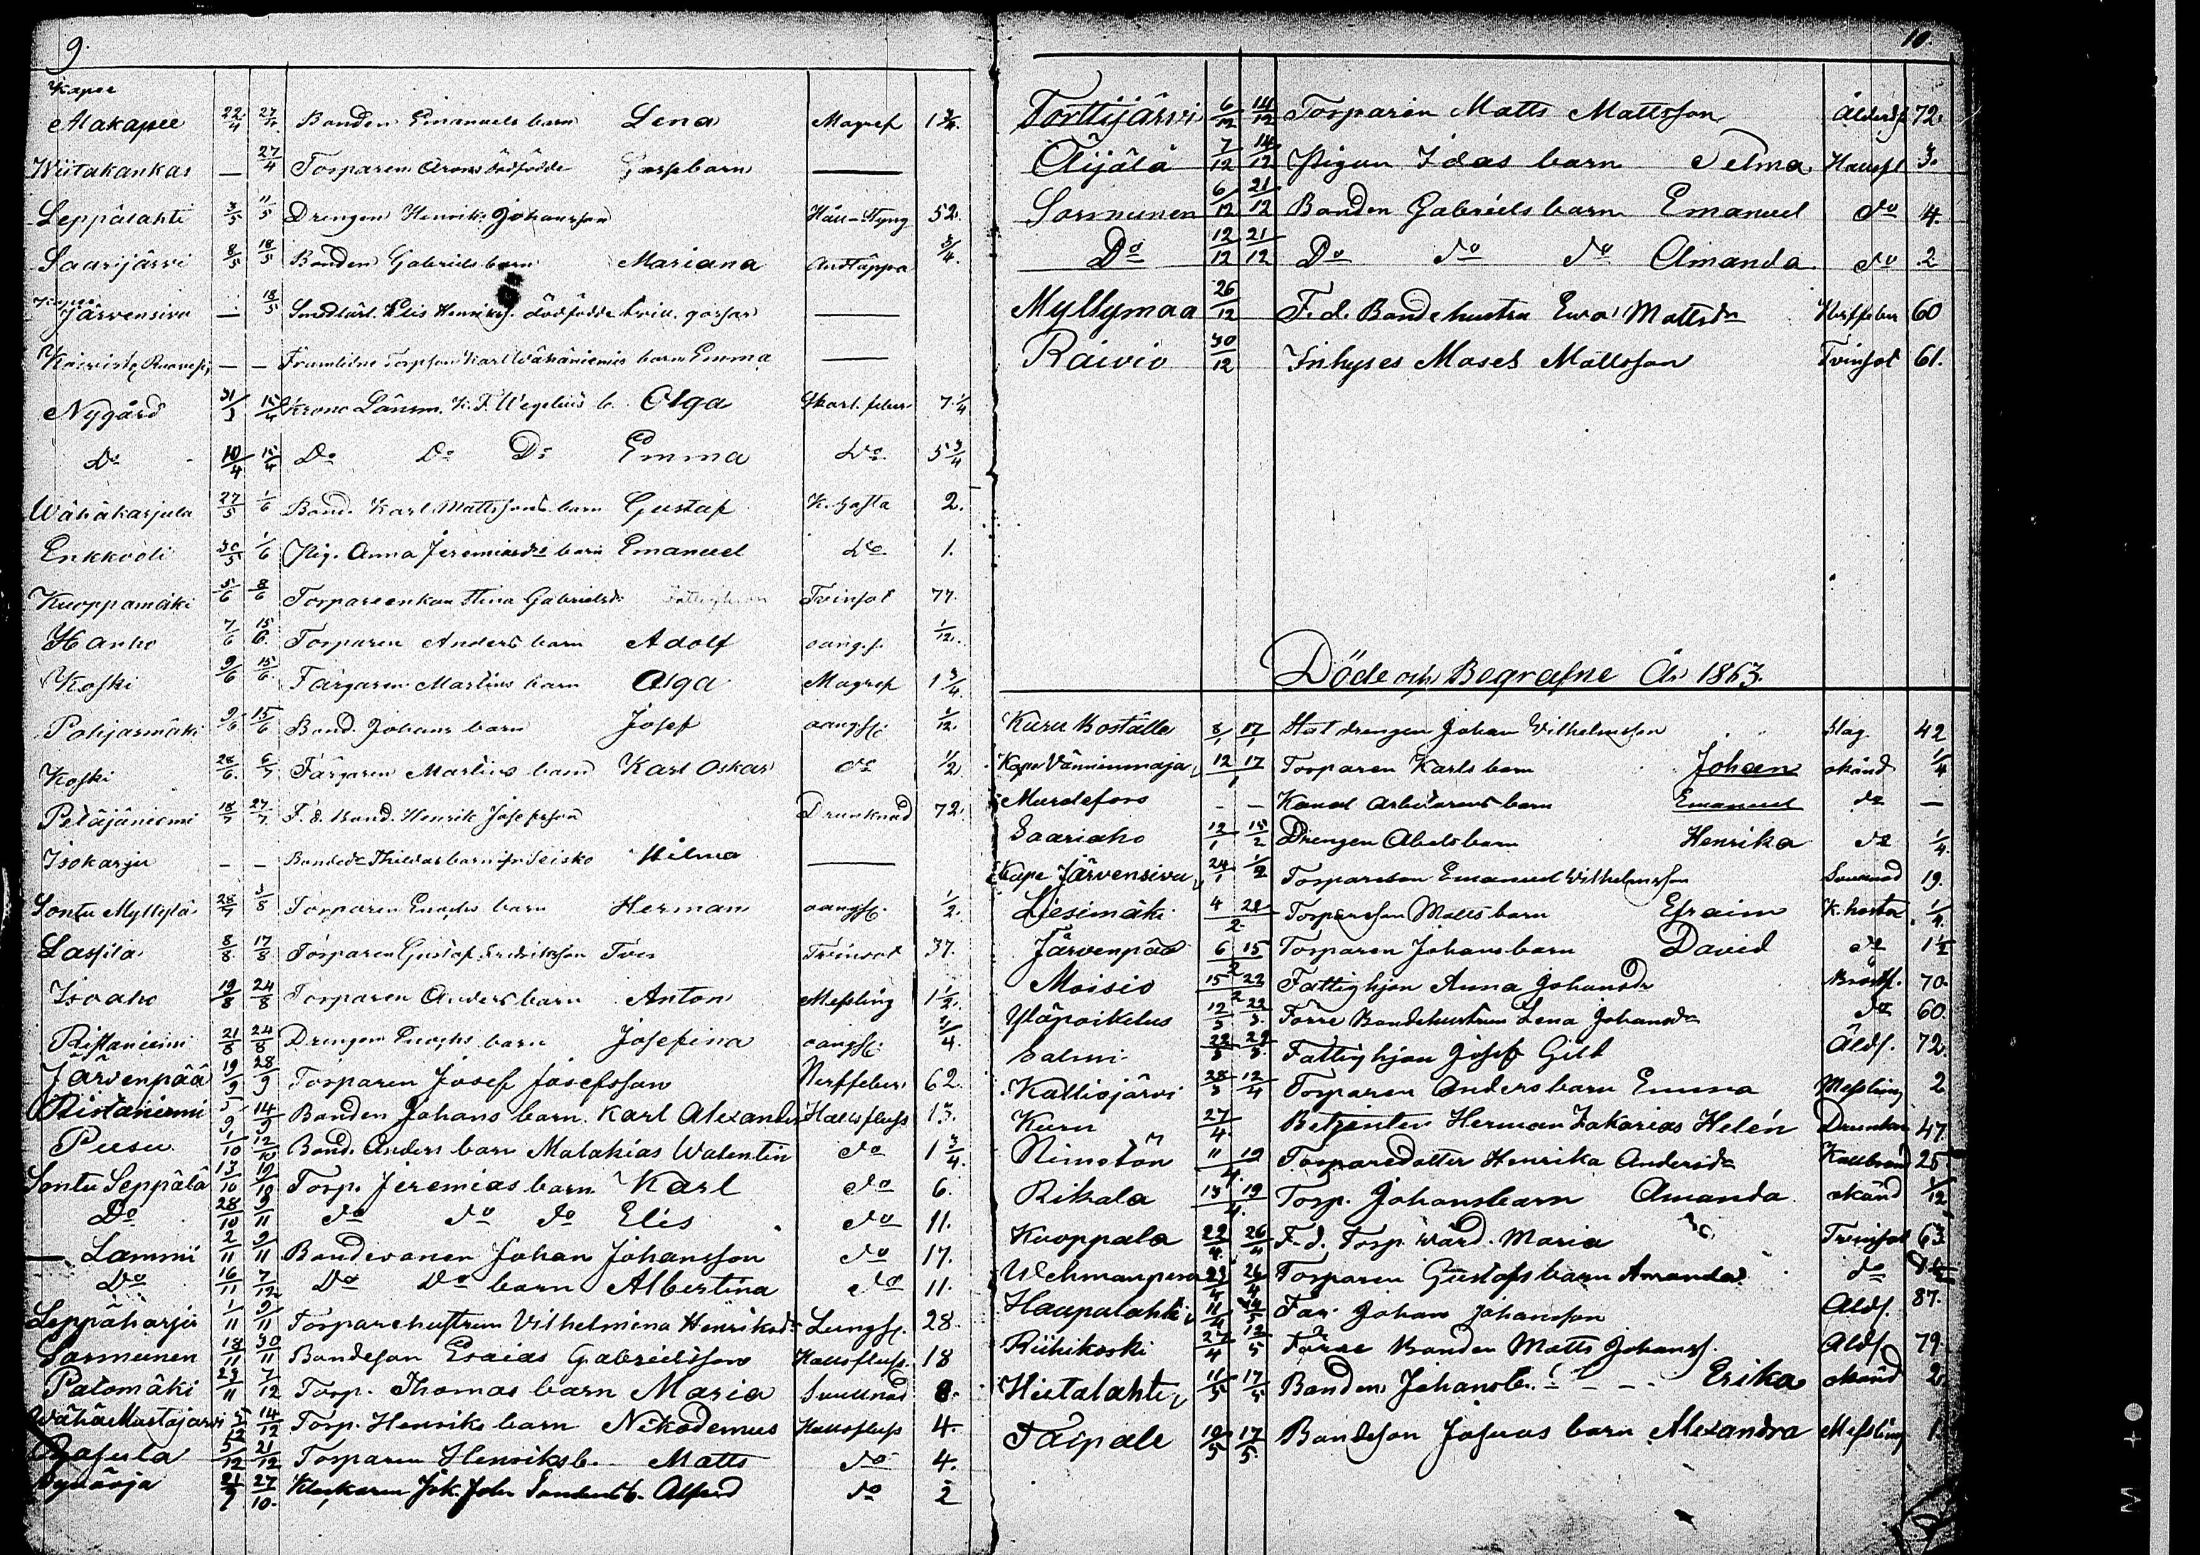 9.
Kapee
Alakapee 22/4 27/4 Bonden Emanuels barn Lena Magref 1 3/4.
Wiitakankas — 27/4 Torparen Arons dödfödde Gossebarn —
Leppälahti 3/5 11/5 Drengen Henrik Johansson Håll-Styng 52.
Saarijärvi 8/5 18/5 Bonden Gabriels barn Mariana Andtäppa 3/4.
Järvensivu — 18/5 Elis Henrikss. dödfödde tvill. gossar —
Koivisto, — — Framlidne Torpson Karl Wähäniemis barn Emma —
Nygård 31/3 15/4 Krono Länsm. K. F. Wegelius b. Olga Skarl. feber 7 1/4
Do 10/4 15/4 Do Do Do Emma Do 5 3/4
Wähäkarjula 27/5 1/6 Bond. Karl Mattssons barn Gustaf K. hosta 2.
Enkkvoli 30/5 1/6 Pig. Anna Jeremiasdr barn Emanuel Do 1.
Kuoppamäki 5/6 8/6 Torpareenkan Stina Gabrielsdr Tvinsot 77.
Hanho 7/6 15/6 Torparen Anders barn Adolf oangf. 1/12.
Koski 9/6 15/6 Färgaren Martins barn Olga Magref 1 3/4
Pohjasmäki 9/6 15/6 Bond. Johans barn Josef oangf. 1/12.
Koski 28/6 6/7 Färgaren Martins barn Karl Oskar do 1/2
Petäjäniemi 18/7 27/7 F. d. Bond. Henrik Josefsson Drunknad 72.
Isokarju — — Bondedr Thildas barn ifr Seisko Hilma —
Sontu Myllylä 28/7 3/8 Torparen Enochs barn Herman oangf. 1/2.
Lassila 8/8 17/8 Torparen Gustaf Fredriksson Tvinsot 37.
Isoaho 19/8 24/8 Torparen Anders barn Anton Messling 1 1/2.
Ristaniemi 21/8 24/8 Drengen Enochs barn Josefina oangf. 3/4.
Järvenpää 19/9 28/9 Torparen Josef Josefsson Nerffeber 62.
Ristaniemi 5/9 14/9 Bonden Johans barn Karl Alexander Hallsfluss 13.
Pusu 1/10 12/10 Bond. Anders barn Malakias Walentin do 1 3/4.
Sontu Seppälä 13/10 19/10 Torp. Jeremias barn Karl do 6.
Do 28/10 9/11 do do do Elis do 11.
— Lammi 2/11 9/11 Bondesonen Johan Johansson do 17.
Do 16/11 7/12 Do Do barn Albertina do 11.
Leppäharju 1/11 9/11 Torparehustrun Vilhelmina Henriksdr Lungs. 28.
Sormunen 18/11 30/11 Bondeson Esaias Gabrielsson Hallsfluss. 18
Palomäki 23/11 7/12 Torp. Thomas barn Maria Svullnad 8.
Wähä Mustajärvi 5/12 14/12 Torp. Henriks barn Nikodemus Hallsfluss 4.
5/12 21/12 Torparen Henriks b. Matts do 4.
Klockaren Joh. b. Alfred do 2
10.
Torttijärvi 6/12 14/12 Torparen Matts Mattsson Ålderds 72.
Äijälä 7/12 14/12 Pigan Idas barn Selma Hallsfl 3.
Sormunen 6/12 21/12 Bonden Gabriels barn Emanuel do 4.
Do 12/12 21/12 Do do do Amanda do 2
Myllymaa 26/12 F. d. Bondehustru Eva Mattsdr Nerffeber 60
Raivio 30/12 Inhyses Moses Mattsson Tvinsot 61.
Döde och Begrafne År 1863.
Kuru Boställe 8/1 17/1 Statdrengen Johan Vilhelmsson Slag 42
Kapee 12 17/1 Torparen Karls barn Johan okänd 1/4
Muroleforss — — Kanal Arbetarens barn Emanuel do —
Saariaho 12/1 15/2 Drengen Abels barn Henrika do 1/4.
Kape Järvensivu 24/1 1/2 Torpareson Emanuel Vilhelmsson Svullnad 19.
Liesimäki 4 22/2 Torpareson Matts barn Efraim K. hosta 1/4.
Järvenpää 6 15/2 Torparen Johans barn David do 1 1/2
Moisio 15 22/2 Fattighjon Anna Johansdr Bröstf. 70.
Yläpoikelus 12/3 22/3 Förre Bondehustrun Lena Johansdr do 60.
Salmi 22/3 29/3 Fattighjon Josef Gilt Åldf. 72.
Kalliojärvi 28/3 12/4 Torparen Anders barn Emma Messling 2
Kuru 27/4. Betjenten Herman Zakarias Helén Drunkn 47.
11 19/4. Torparedotter Henrika Andersdr Kallbrand 25
Rikala 15 19/4. Torp. Johans barn Amanda okänd 1/12
Kuoppala 23/4 26/4 F. d. Torp. wärd. Maria Tvinsot 63.
Wehmanpera 23/4 26/4 Torparen Gustafs barn Amanda do
Haapalahti Far. Johan Johansson Åldf. 87.
Riihikoski 27/4 12/5 Förre Bonden Matts Johanss. Åldf. 79.
Hietalahti 11/5 17/5 Bonden Johans b. Erika okänd 2.
Taipale 10/5 17/5 Bondeson Josuas barn Alexandra Messling 1.